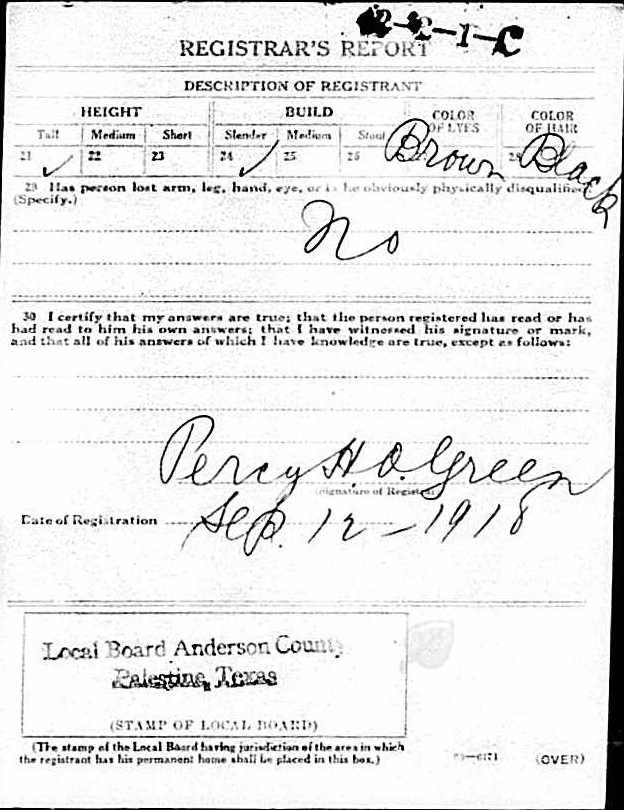 2-2-1-C
REGISTRAR'S REPORT
DESCRIPTION OF REGISTRANT
HEIGHT BUILD COLOR OF EYES COLOR OF HAIR
Tall Medium Short Slender Medium Stout
21 ✓ 22 23 24 ✓ 25 26 Brown 28 Black
29 Has person lost arm, leg, hand, eye, or is he obviously physically disqualified?
(Specify.)
No
30 I certify that my answers are true; that the person registered has read or has
had read to him his own answers; that I have witnessed his signature or mark,
and that all of his answers of which I have knowledge are true, except as follows:
Percy H. O. Green
(Signature of Registrar)
Date of Registration Sep. 12 - 1918
Local Board Anderson County
Palestine, Texas
(STAMP OF LOCAL BOARD)
(The stamp of the Local Board having jurisdiction of the area in which
the registrant has his permanent home shall be placed in this box.)
(OVER)